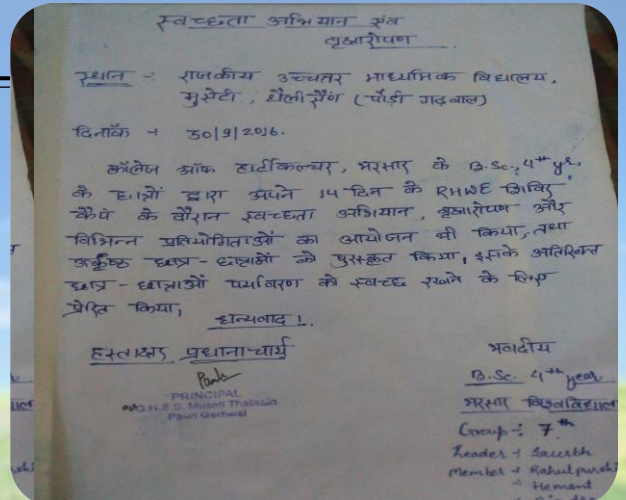 स्वच्छता अभियान एंव
वृक्षारोपण
स्थान :- राजकीय उच्चतर माध्यमिक विद्यालय,
मुसेटी, थैलीसैंण (पौड़ी गढ़वाल)
दिनाँक → 30/9/2016.
कॉलेज ऑफ हार्टीकल्चर, भरसार के B.Sc., 4th yr,
के छात्रों द्वारा अपने 14 दिन के RHWE शिविर
कैंप के दौरान स्वच्छता अभियान, वृक्षारोपण और
विभिन्न प्रतियोगिताओं का आयोजन भी किया, तथा
छात्र - छात्राओं को पुरस्कृत किया, इसके अतिरिक्त
छात्र - छात्राओं पर्यावरण को स्वच्छ रखने के लिए
प्रेरित किया,
धन्यवाद !.
हस्ताक्षर प्रधानाचार्य
भवदीय
PRINCIPAL
G.H.S.S. Museti Thalisain
Pauri Garhwal
B.Sc. 4th year
भरसार विश्वविद्याल
Group :- 7th
Leader → Saurbh
Member → Rahul
Hemant